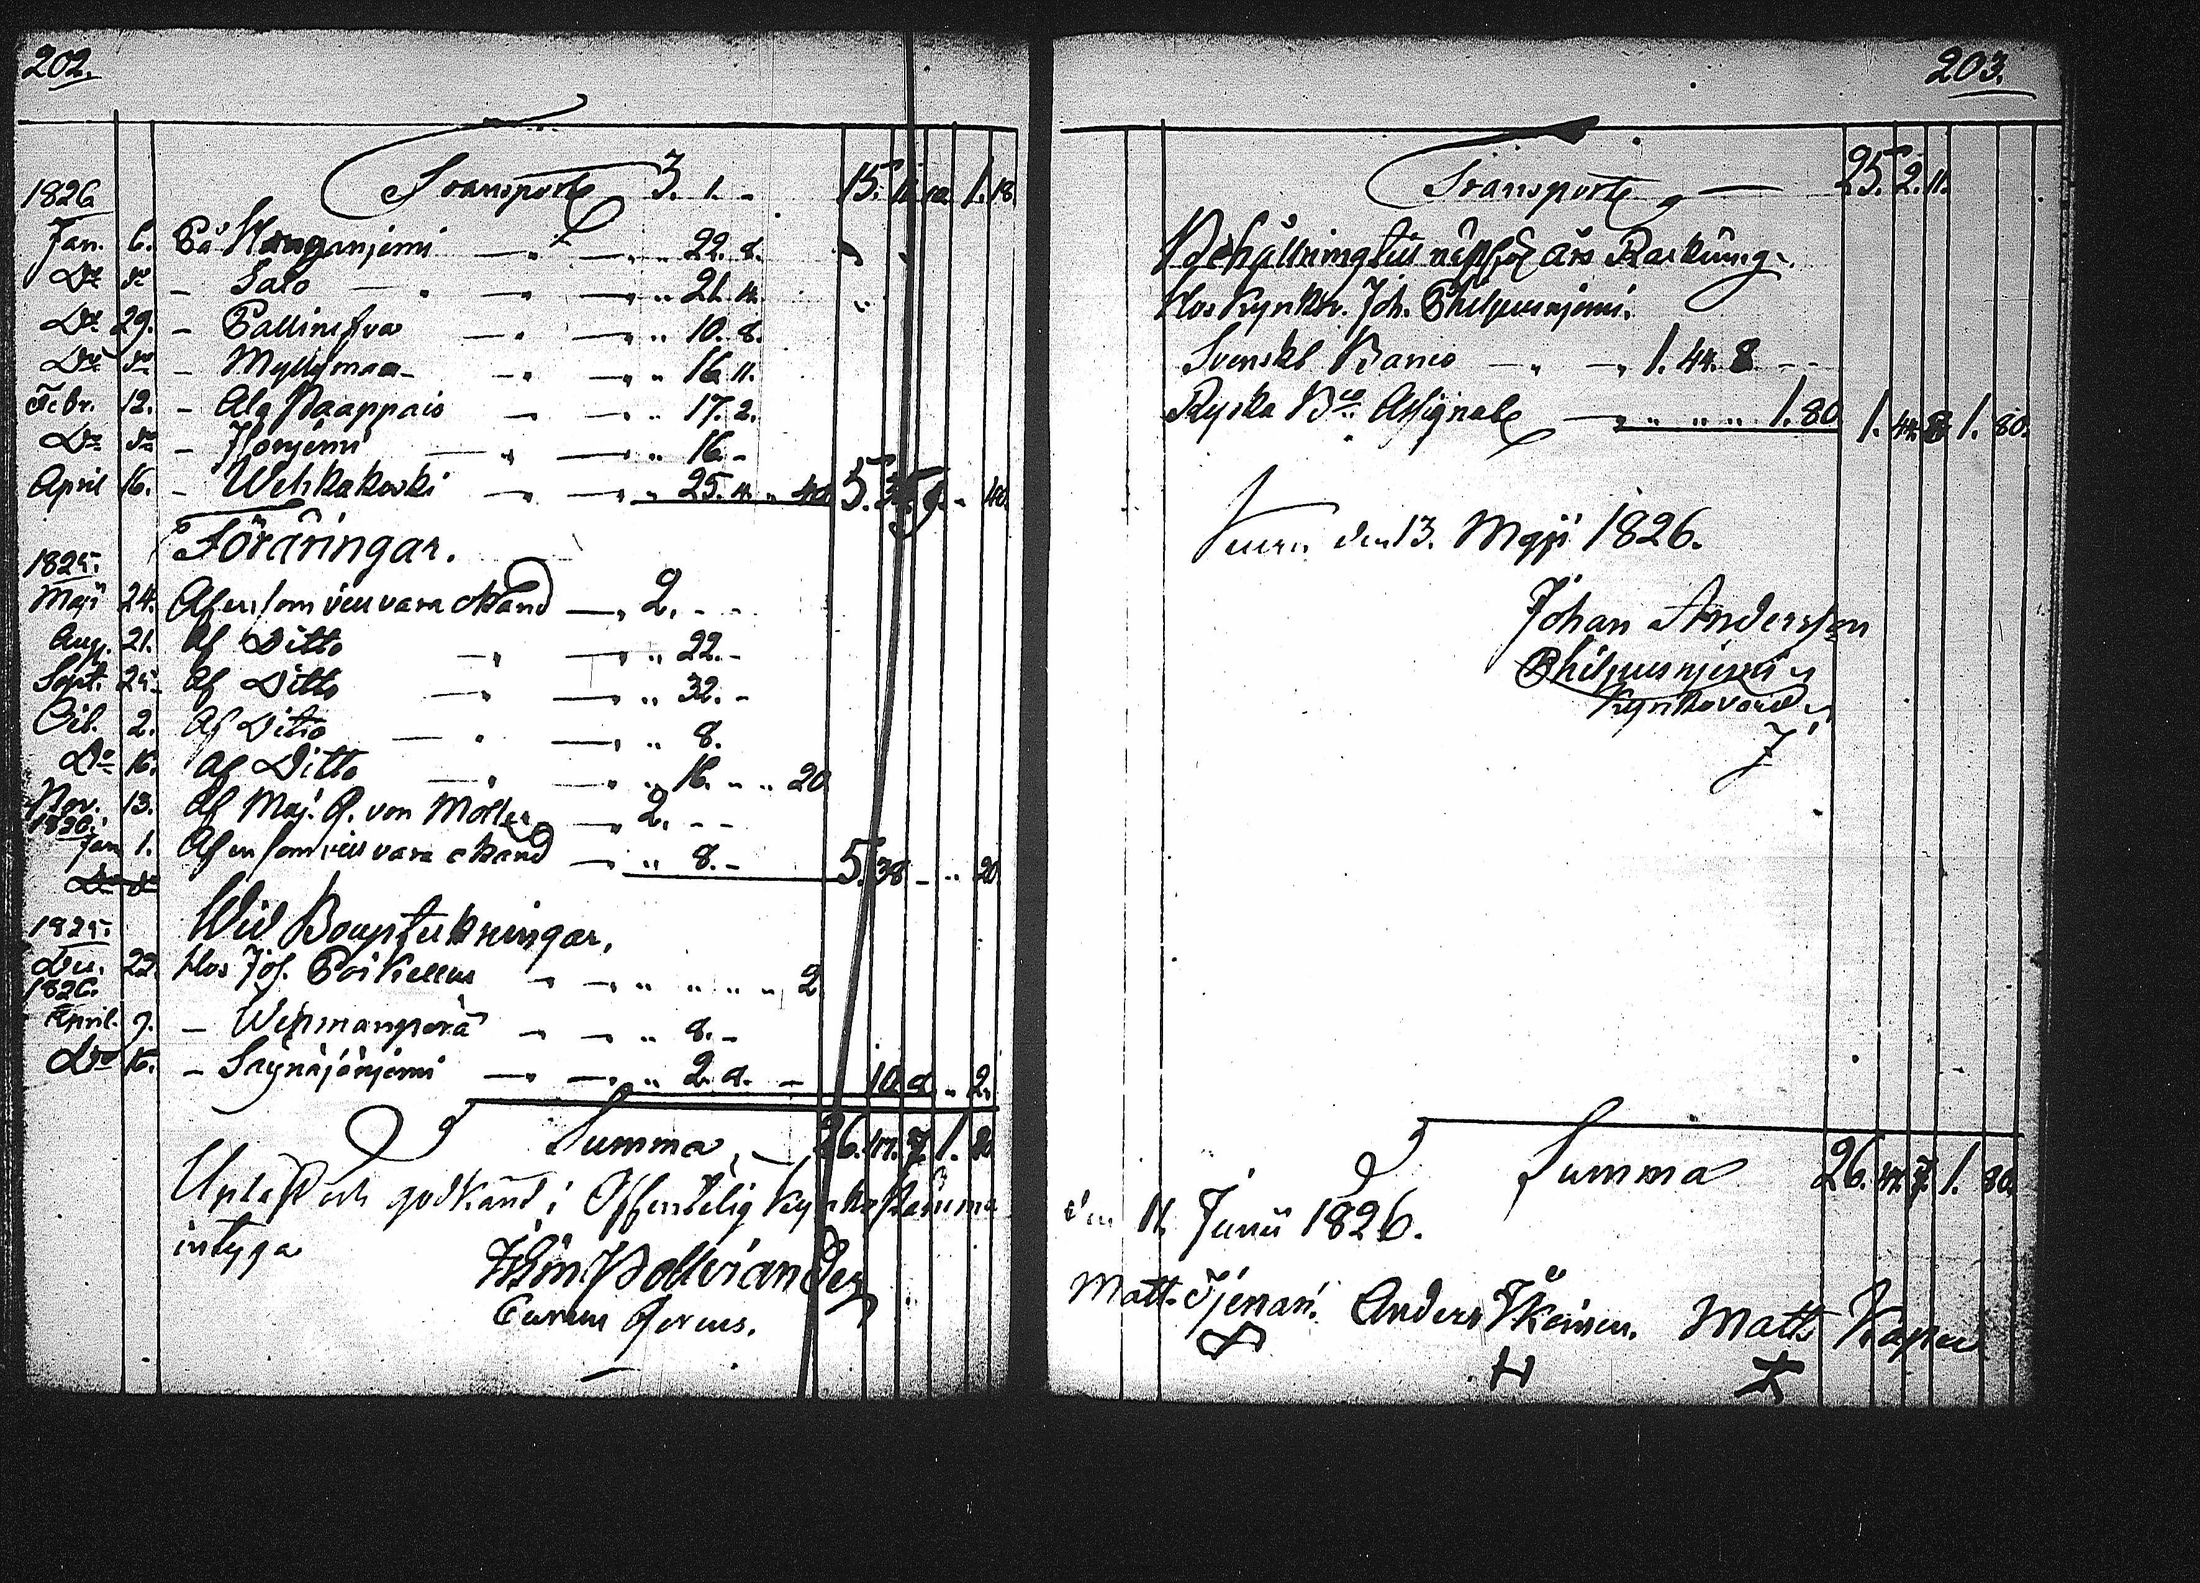 202.
Transporte 3. 1. - 15. 1. 18.
1826
Jan. 6. På Kanganjemi 22. 8.
Do do - Salo 21. 4.
Do 29. - Pallinefva 10. 8.
Do do - Myllymaa 16. 11.
Febr. 12. - Ala Paappais 17. 2.
Do do - 16. -
April 16. - Wehkakoski 25. 4. 40 5. 9. - 40.
Föräringar.
1825.
Maji 24. Af en som vill vara okänd 2. - -
Aug. 21. Af Ditto 22. -
Sept. 25. Af Ditto 32. -
Oct. 2. Af Ditto 8.
Do 16. Af Ditto 16. 20
Nov. 13. Af Maj. G. von Möller 2. - -
1826.
Jan 1. Af en som vill vara okänd 8. - 5. 38 - 20
Do do
1825. Wid Bouptekningar.
Dec. 22. Hos Joh. Poikellus 2
1826.
April. 9. - Wehmanperä 8. -
Do 16. - Säynäjärjemi 2. 9. - 10. 9. 2.
Summa 26. 47. 7. 1. 80
Uplast och godkänd i Offentelig Kyrkostämma
intyga
Joh: Polviander
Curam Gerens.
203.
Transporte 25. 2. 11.
Behållning til näst före års Räkning.
Hos Kyrkov. Joh. Philpusnjemi.
Svenskt Banco 1. 44. 8 - -
Ryska Bco Assignat 1. 80 1. 44. 8 1. 80.
den 13. Maji 1826.
Johan Andersson
Philpusnjemi
Kyrkovärd
Summa 26. 47. 7. 1. 80.
den 11. Junii 1826.
Matt. Anders Matts